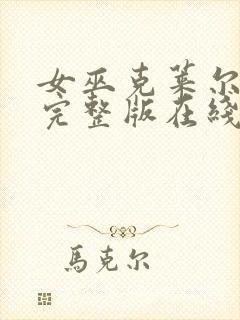 女巫克莱尔
完整版在綫
馬克尔